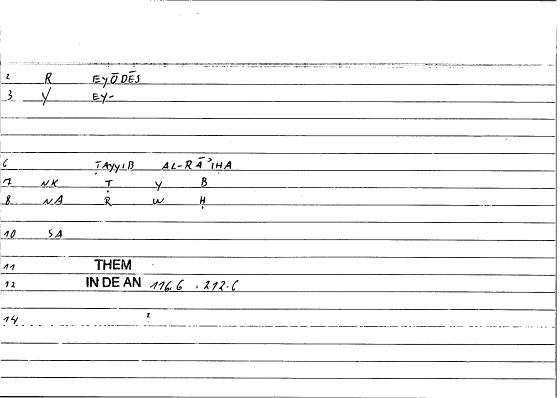 2 R EYŌDĒS
3 Y EY-
6 ṬAYYIB AL-RĀʾIḤA
7 NK Ṭ Y B
8 NA R W Ḥ
10 SA
11 THEM
12 IN DE AN 116.6 . 212.6
14 2